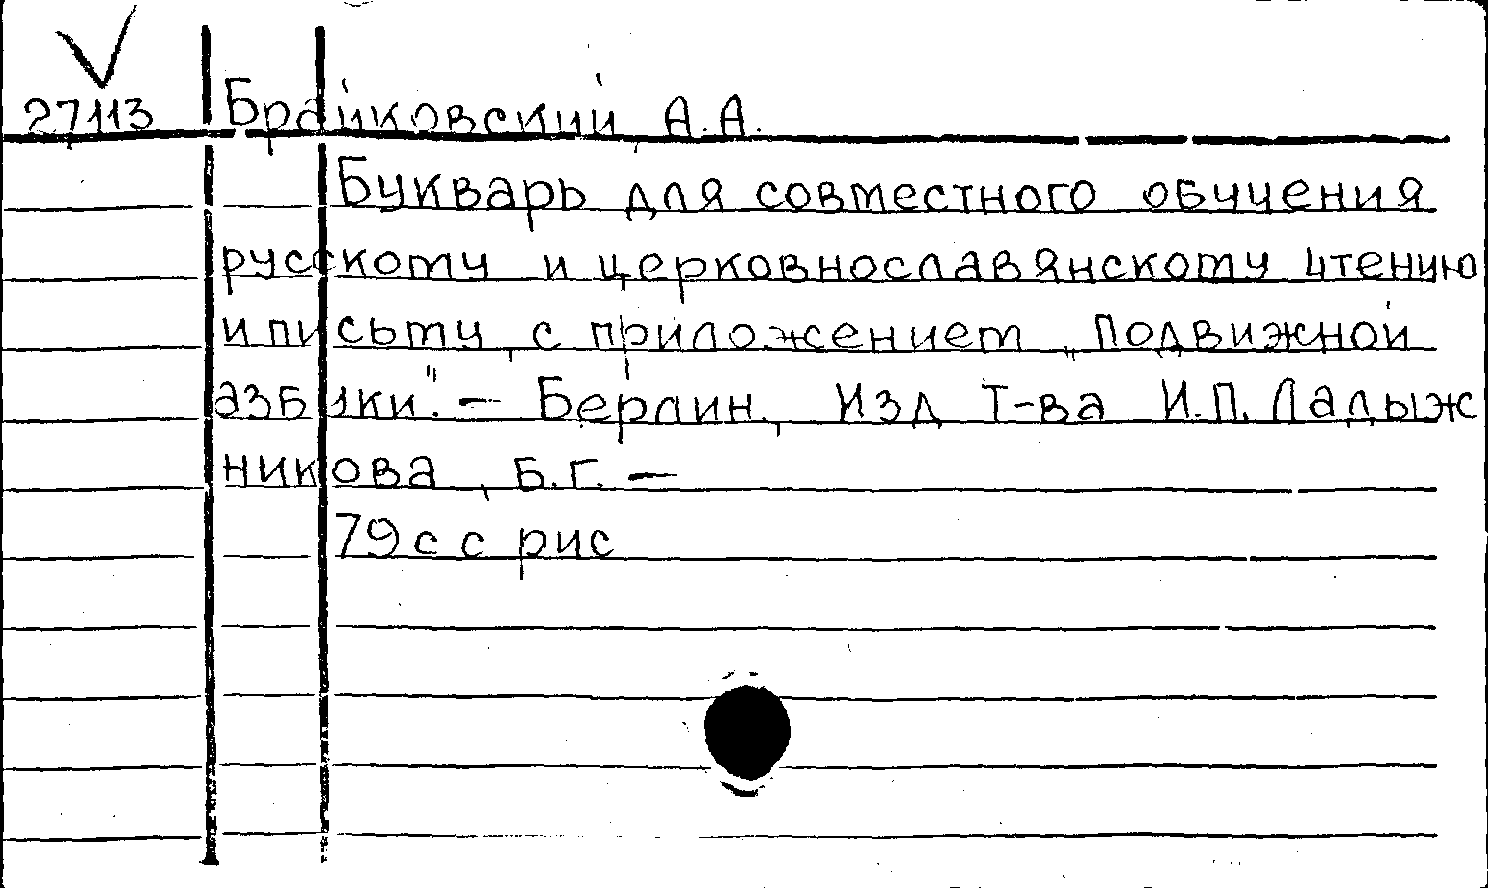 27113 Брайковский, А.А.
Букварь для совместного обучения
русскому и церковнославянскому чтению
и письму, с приложением „Подвижной
азбуки". – Берлин, Изд Т-ва И.П. Ладыж
никова, Б.г. –
79 с с рис